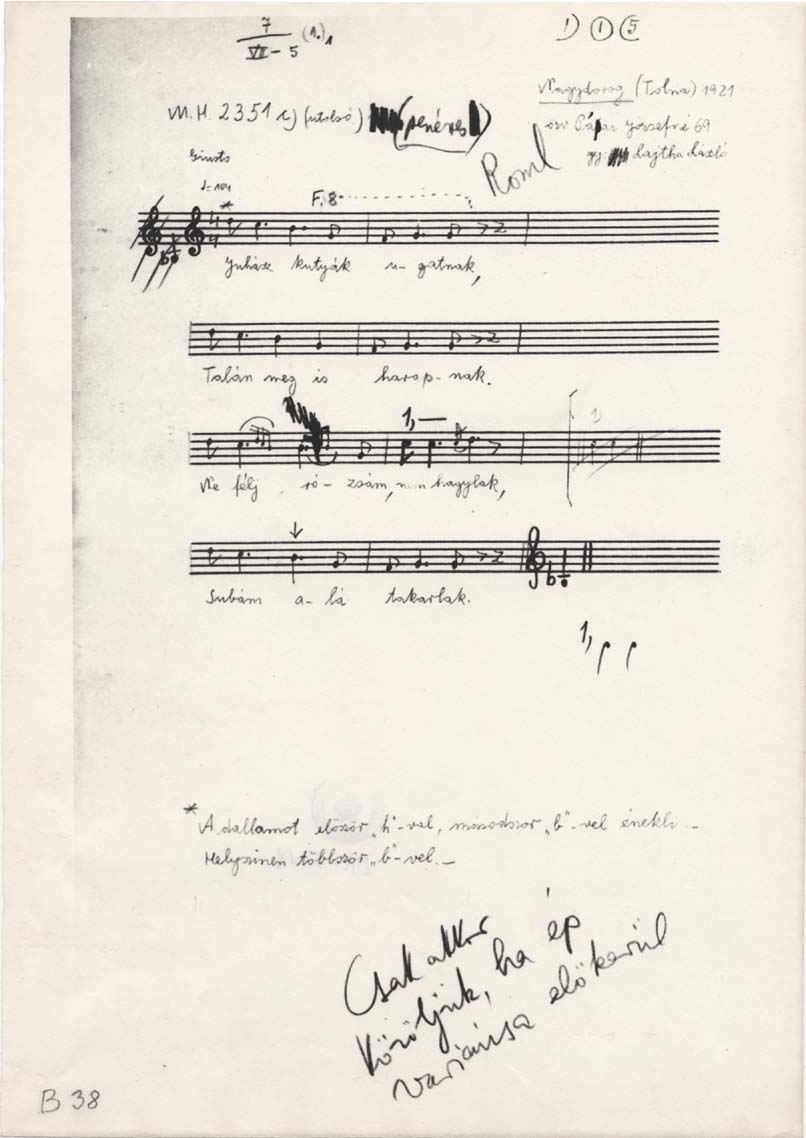 7 (1.) 1
VII - 5
1) 1 5
M.H. 2351 c) (utolsó) (penézes)
Nagydorog (Tolna) 1921
özv Pápai Józsefné 69
gy: Lajtha László
Giusto
♩= 104
Roml
F. 8
4
4
*
Juhász kutyák u- gatnak,
Talán meg is harap- nak.
1, —
Ne félj ró- zsám, nem hagylak,
Subám a- lá takarlak.
1,
* A dallamot először „h"-val, másodszor „b"-vel énekli. -
Helyszinen többször „b"-vel. -
Csak akkor
közöljük, ha ép
variánsa előkerül
B 38